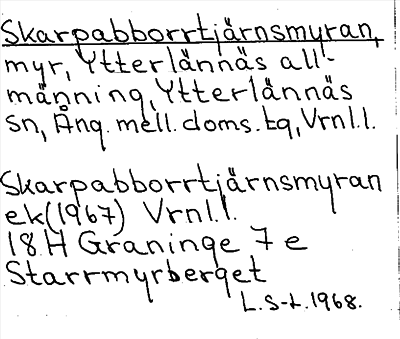 Skarpabborrtjärnsmyran,
myr, Ytterlännäs all-
männing, Ytterlännäs
sn, Ång. mell. doms. tg, Vrnl.l.
Skarpabborrtjärnsmyran
ek(1967) Vrnl.l.
18H Graninge 7 e
Starrmyrberget
L.S-t. 1968.